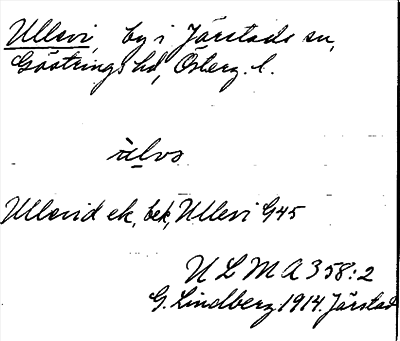 Ullevi, by i Järstads sn,
Göstrings hd, Österg. l.
ùlvs
Ullevid ek, bek, Ullevi G45
ULMA 358:2
G. Lindberg 1914. Järstad